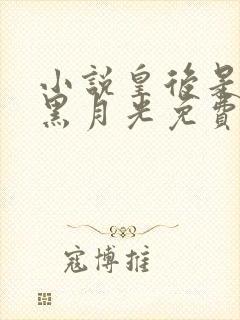 小說皇後是
黑月光免費
寇博推